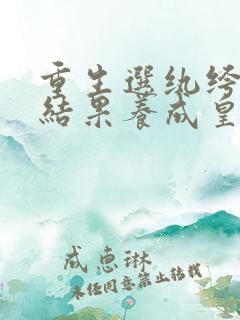 重生選紈絝
結果養成皇
成惠琳
未经同意禁止转载